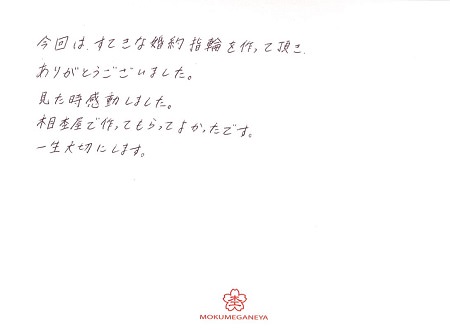 今回は、すてきな婚約指輪を作って頂き、
ありがとうございました。
見た時感動しました。
相杢屋で作ってもらってよかったです。
一生大切にします。
杢
MOKUMEGANEYA